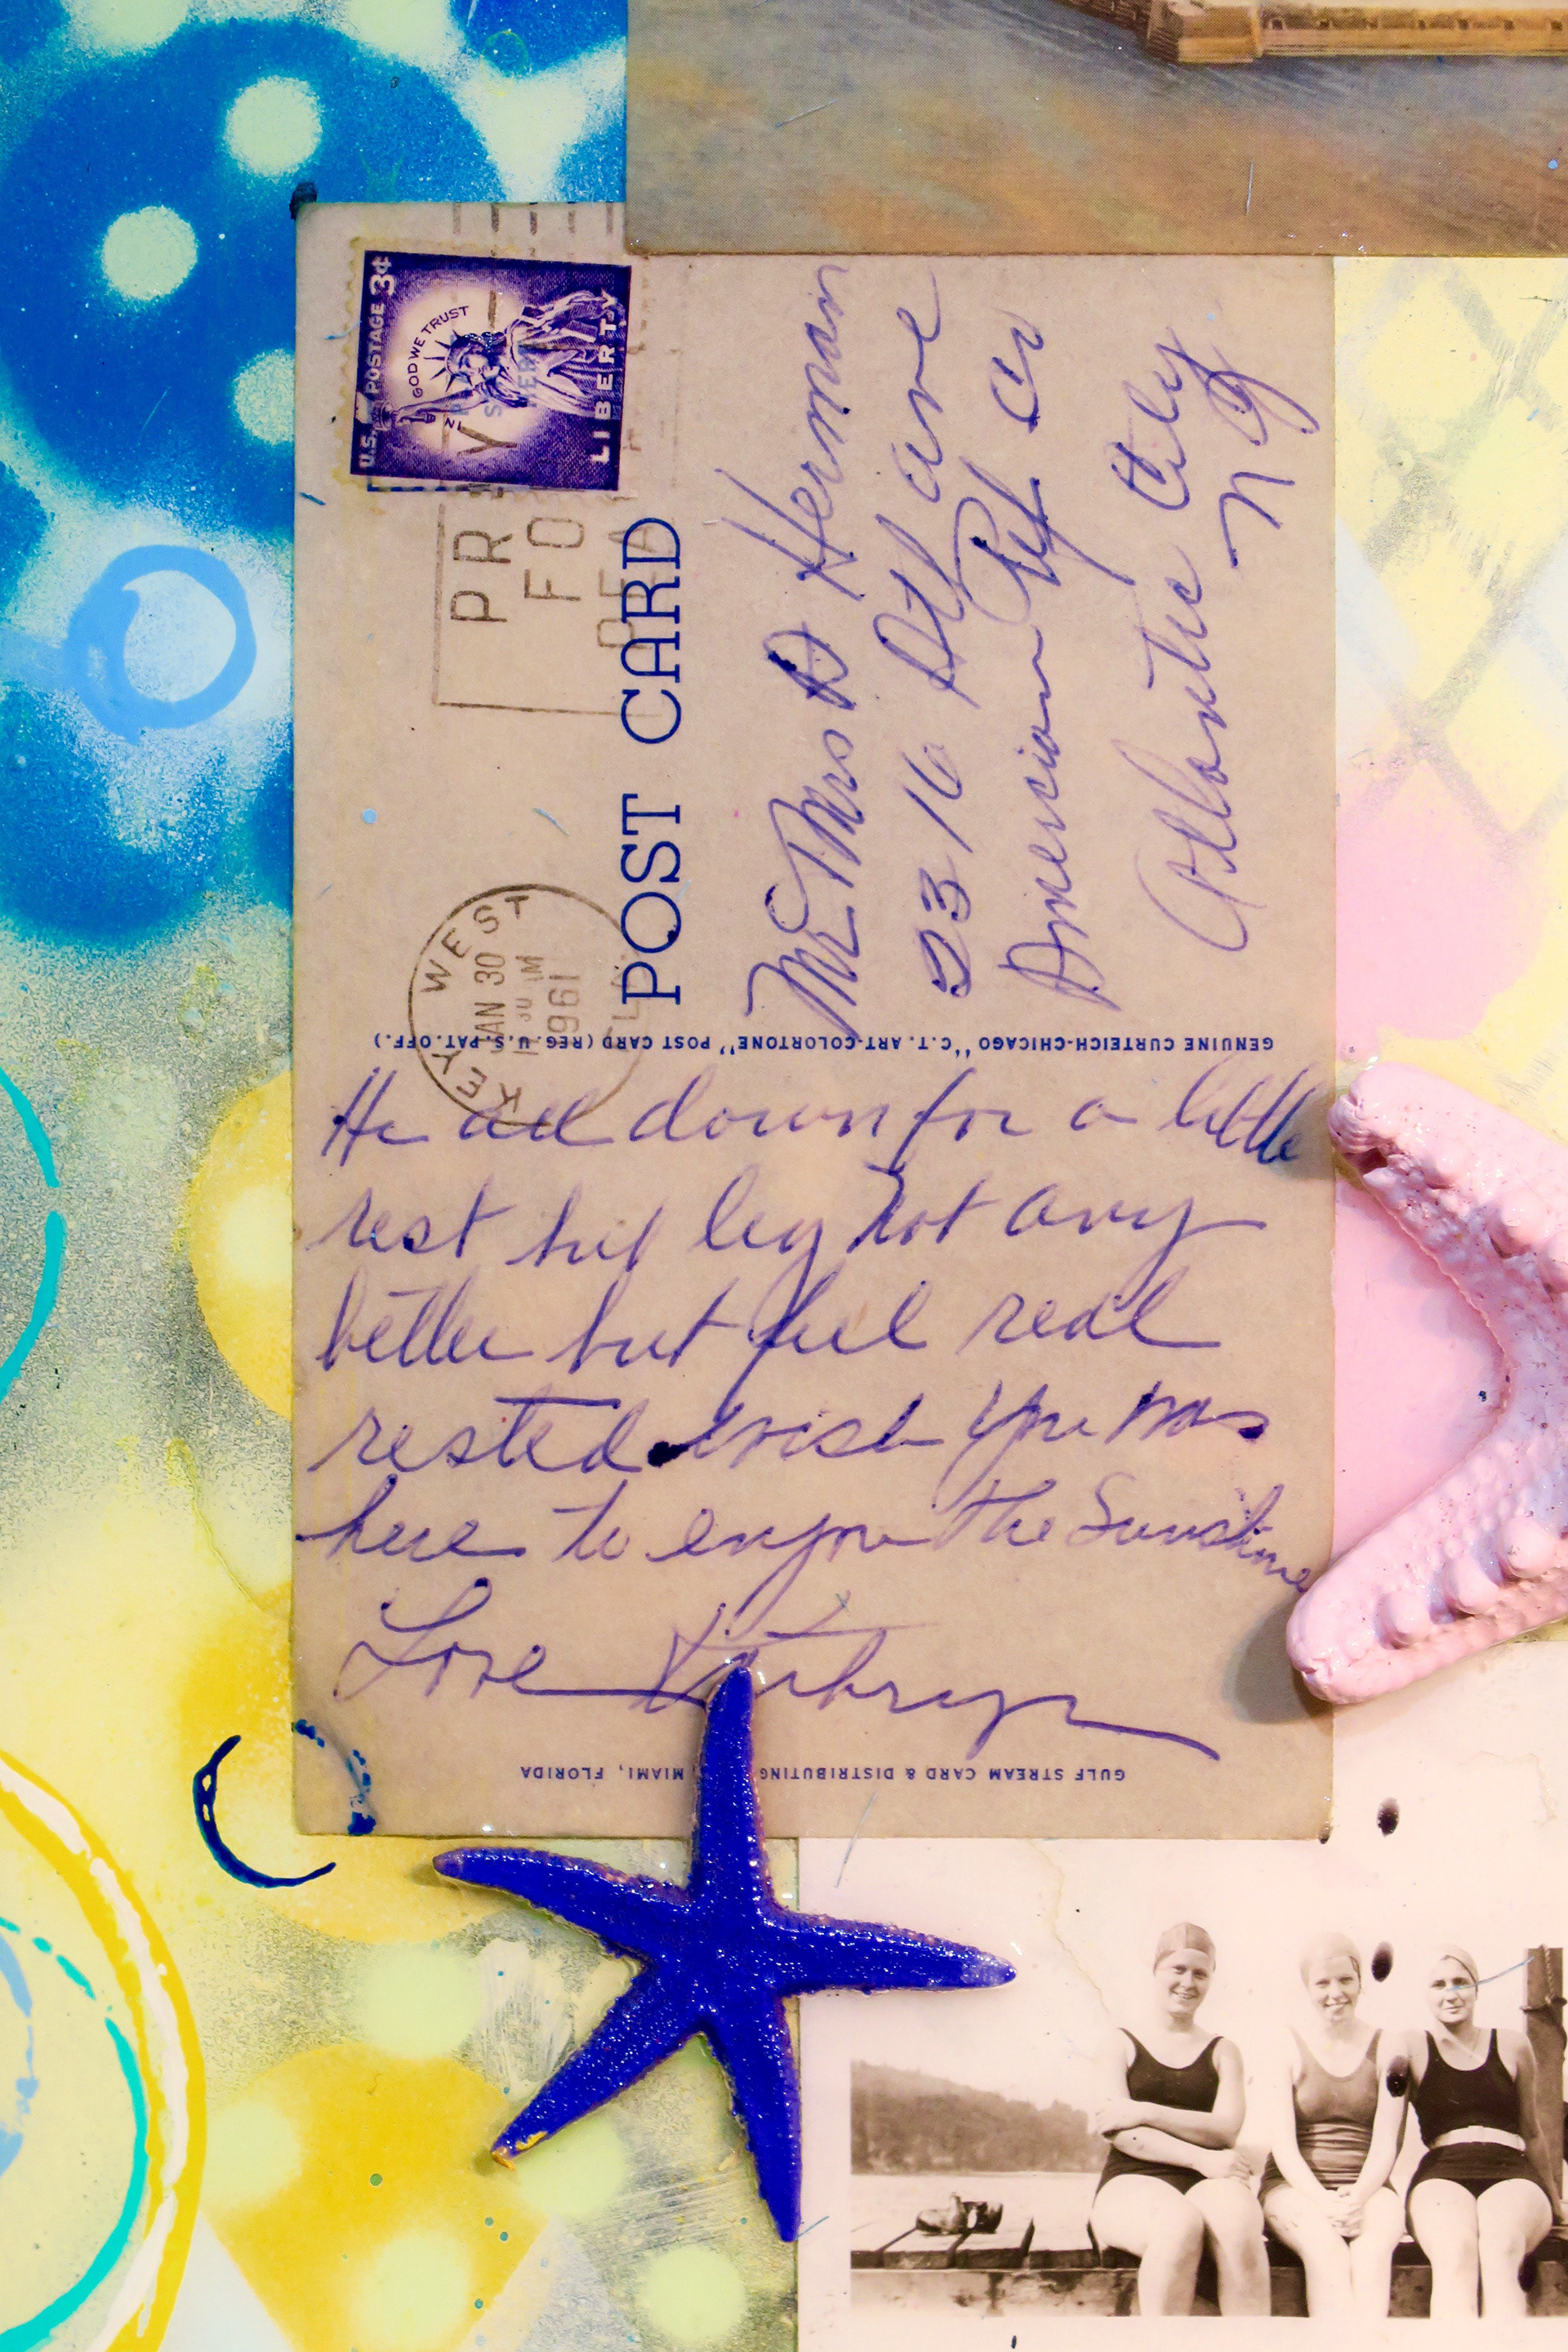 U.S. POSTAGE 3¢
IN GOD WE TRUST
LIBERTY
PR
FO
POST CARD
KEY WEST
JAN 30
1961
FLA
Mr Mrs D Herman
2316 Atl ave
American Apt
Atlantic City
N J
GENUINE CURTEICH-CHICAGO "C.T. ART-COLORTONE" POST CARD (REG. U.S. PAT. OFF.)
Hi all down for a little
rest hip leg not any
better but feel real
rested wish you was
here to enjoy the Sunshine
Love Kathryn
GULF STREAM CARD & DISTRIBUTING MIAMI, FLORIDA